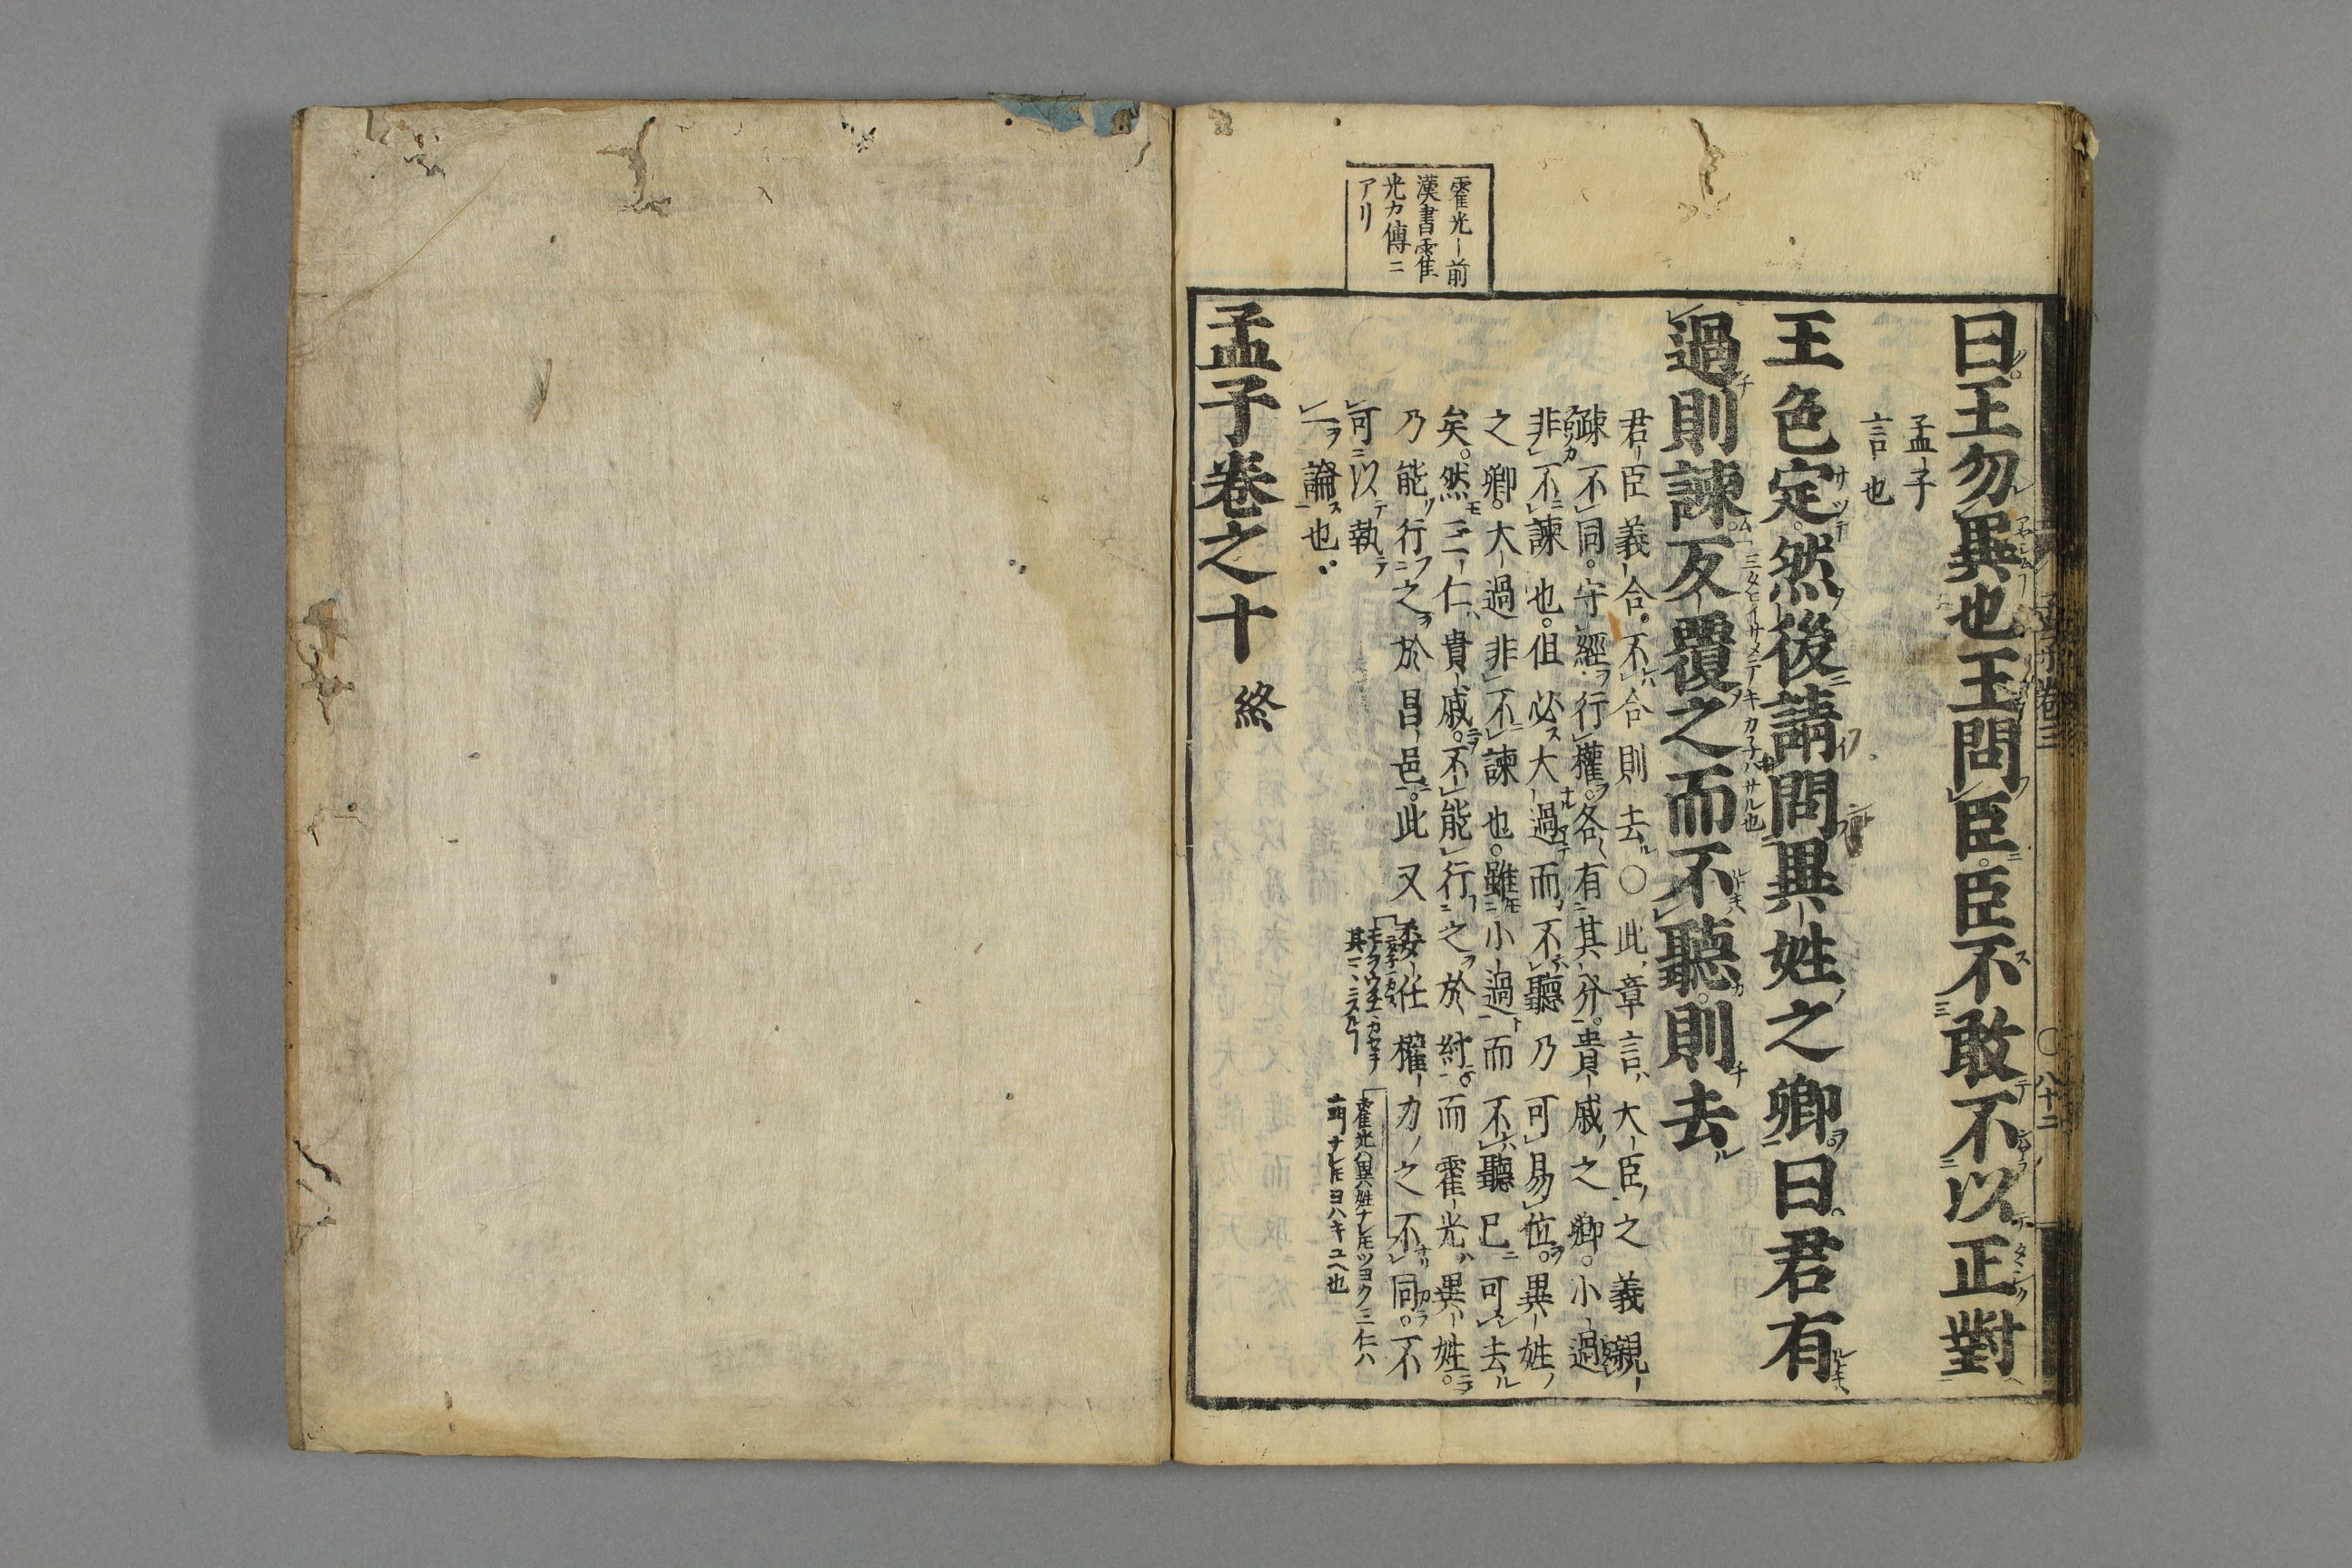 曰王勿異也王問臣臣不敢不以正對
孟子
言也
王色定然後請問異姓之卿曰君有
過則諫反覆之而不聽則去
君臣義合不合則去○此章言大臣之義親
疎不同守經行權各有其分貴戚之卿小過
非不諫也但必大過而不聽乃可易位異姓
之卿大過非不諫也雖小過而不聽已可去
矣然三仁貴戚不能行之於紂而霍光異姓
乃能行之於昌邑此又委任權力之不同不
可以執
一論也
霍光ハ異姓ナレ𪜈ツヨク三仁ハ
霍光ー前
漢書霍
光カ傳ニ
アリ
孟子巻之十 終
八十二